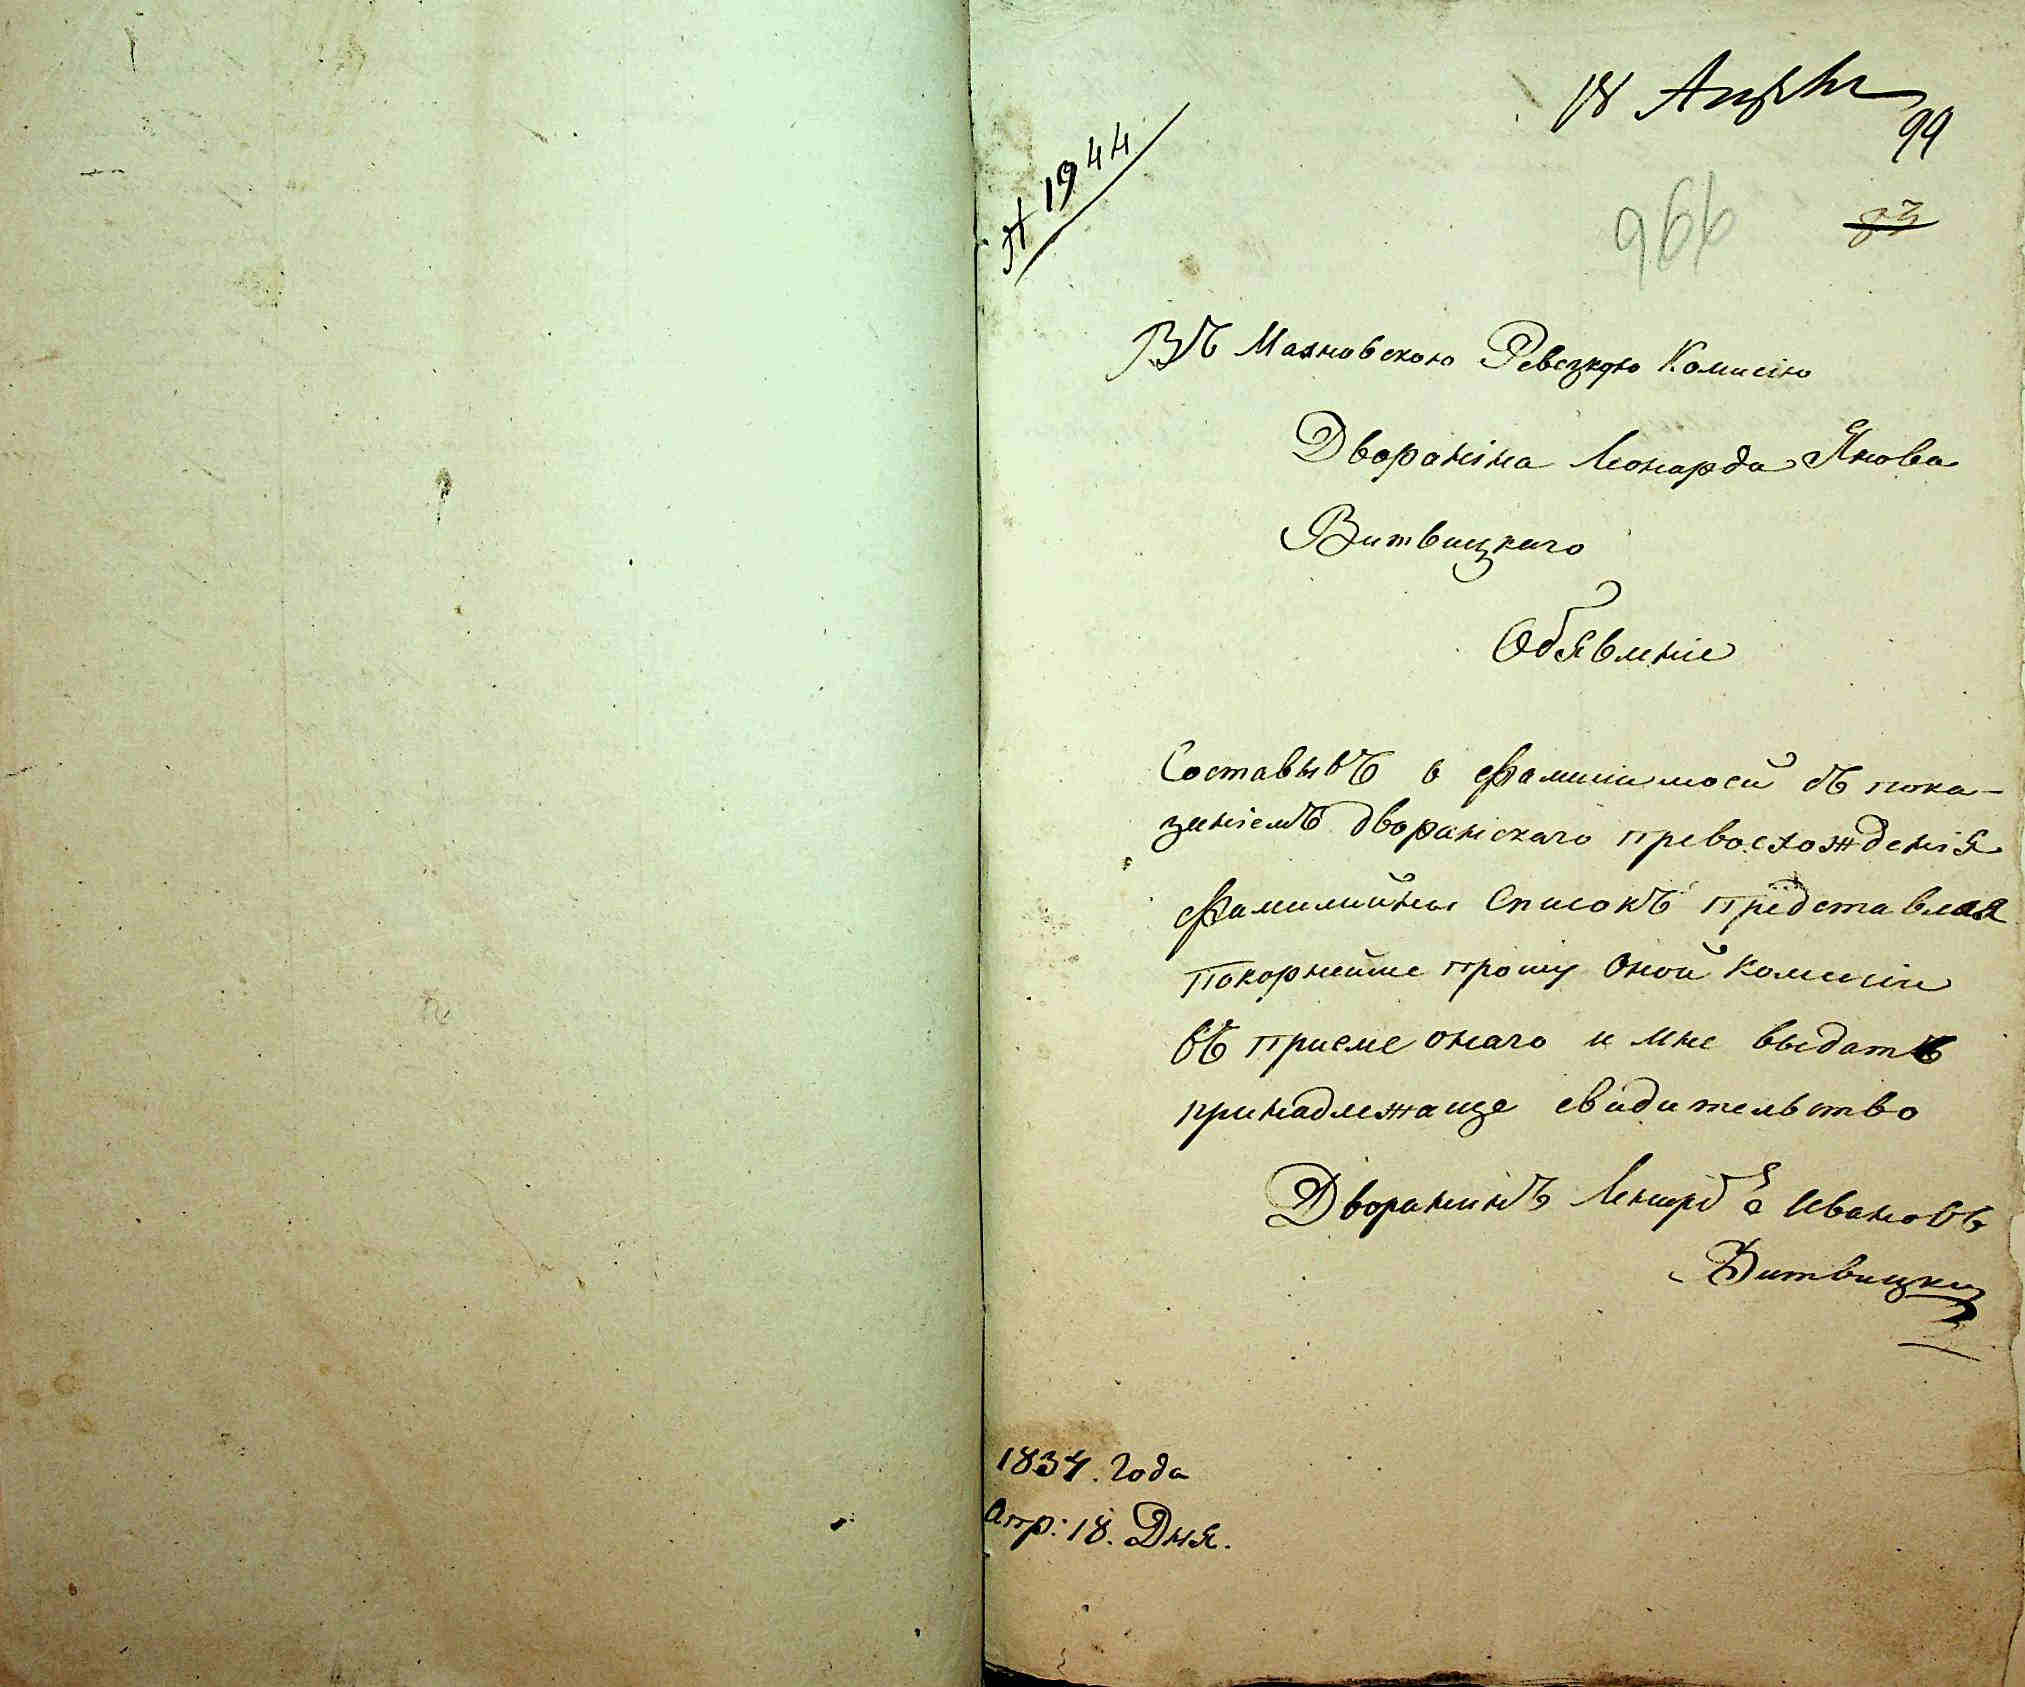 18 Апрѣл
99
№ 1944
966
83
Въ Махновскою Ревезкую Комисію
Дворяніна Леонарда Янова
Витвицкаго
Обявленіе
Составывъ о Фамиліи моей съ пока-
заніемъ дворанскаго превосхожденія
Фамилийны Списокъ представляя
покорнейше прошу Оной Комисіи
въ приеме онаго и мне выдать
принадлежаще свидительство
Дворанинъ Леонард Ивановъ
Витвицки
1834. Года
Апр: 18. Дня.